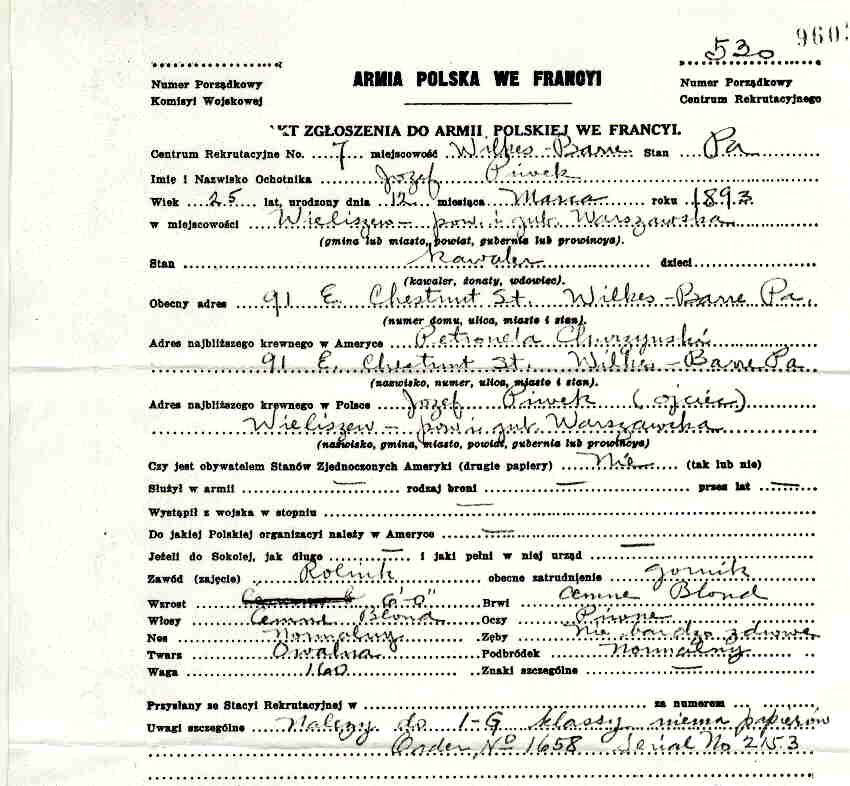 530 960
Numer Porządkowy
Komisyi Wojskowej
ARMIA POLSKA WE FRANCYI
Numer Porządkowy
Centrum Rekrutacyjnego
AKT ZGŁOSZENIA DO ARMII POLSKIEJ WE FRANCYI.
Centrum Rekrutacyjne No. 7 miejscowość Wilkes-Barre Stan Pa
Imię i Nazwisko Ochotnika Józef Piwek
Wiek 25 lat, urodzony dnia 12 miesiąca Marca roku 1893
w miejscowości Wieliszew - pow. i gub. Warszawska
(gmina lub miasto, powiat, gubernia lub prowincya).
Stan Kawaler dzieci
(kawaler, żonaty, wdowiec).
Obecny adres 91 E. Chestnut St. Wilkes-Barre Pa.
(numer domu, ulica, miasto i stan).
Adres najbliższego krewnego w Ameryce Petronela
91 E. Chestnut St. Wilkes-Barre Pa
(nazwisko, numer, ulica, miasto i stan).
Adres najbliższego krewnego w Polsce Józef Piwek (ojciec)
Wieliszew - pow. i gub. Warszawska
(nazwisko, gmina, miasto, powiat, gubernia lub prowincya)
Czy jest obywatelem Stanów Zjednoczonych Ameryki (drugie papiery) Nie (tak lub nie)
Służył w armii — rodzaj broni — przez lat —
Wystąpił z wojska w stopniu —
Do jakiej Polskiej organizacyi należy w Ameryce —
Jeżeli do Sokolej, jak długo — i jaki pełni w niej urząd —
Zawód (zajęcie) Rolnik obecne zatrudnienie gornik
Wzrost 6'0" Brwi Cemne Blond
Włosy Cemne Blond Oczy Piwne
Nos Normalny Zęby Nie bardzo zdrowe
Twarz Owalna Podbródek Normalny
Waga 160 Znaki szczególne —
Przysłany ze Stacyi Rekrutacyjnej w za numerem
Uwagi szczególne Nalezy do 1-G klassy niema papierów
Order No 1658 Serial No 2153